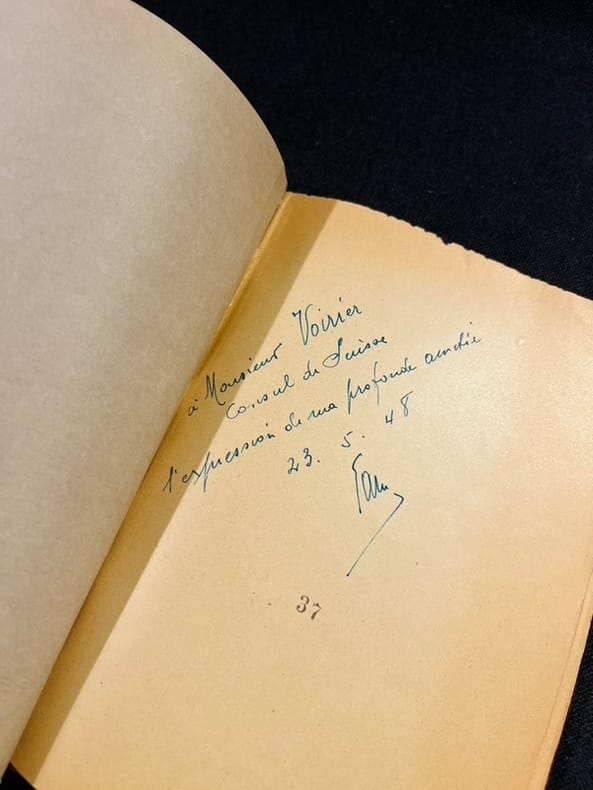 à Monsieur Voirier
Consul de Suisse
l'expression de ma profonde amitié
23. 5. 48
37